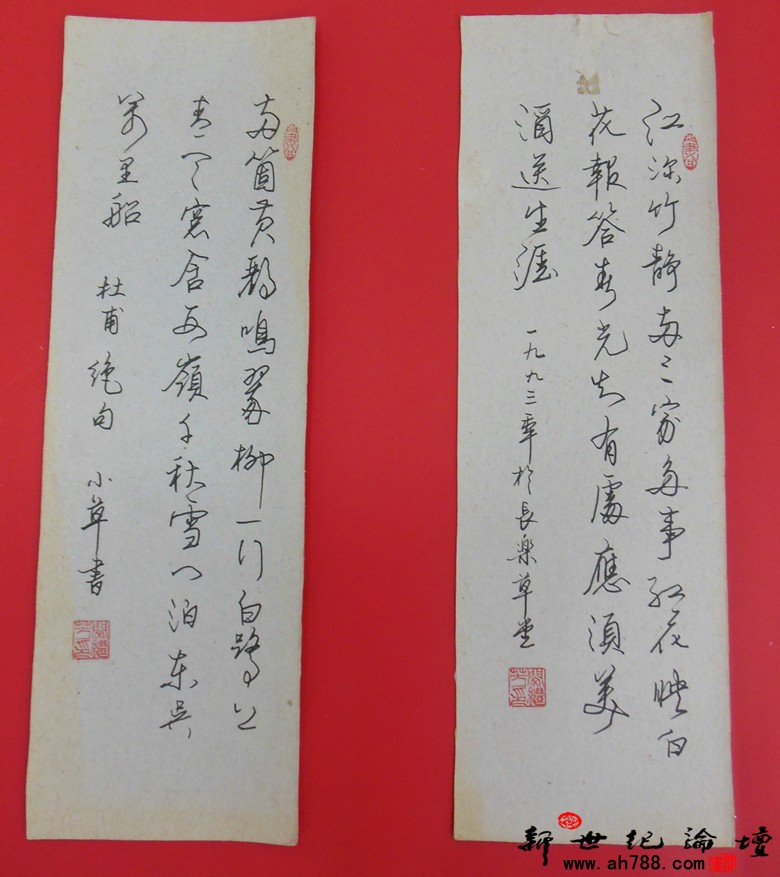 江深竹靜两三家多事红花映白
花報答春光知有處應須美
酒送生涯
一九九三年於長樂草堂
两箇黄鹂鳴翠柳一行白鹭上
青天窓含西嶺千秋雪门泊东吴
萬里船
杜甫绝句
小草書
新世纪論壇
www.ah788.com